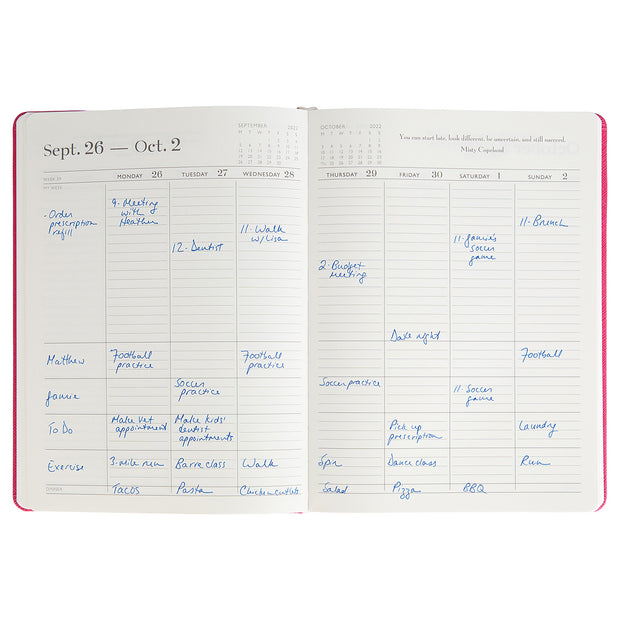 Sept. 26 — Oct. 2
SEPTEMBER 2022
M T W T F S S
OCTOBER 2022
M T W T F S S
You can start late, look different, be uncertain, and still succeed.
Misty Copeland
WEEK 39
MONDAY 26
TUESDAY 27
WEDNESDAY 28
THURSDAY 29
FRIDAY 30
SATURDAY 1
SUNDAY 2
MY WEEK
-Order
prescription
refill
9-Meeting
with
Heather
12-Dentist
11-Walk
w/Lisa
2-Budget
Meeting
Date night
11-Jamie's
Soccer
game
11-Brunch
Matthew
Football
practice
Football
practice
Football
Jamie
Soccer
practice
Soccer practice
11-Soccer
game
To Do
Make vet
appointment
Make kids'
dentist
appointments
Pick up
prescription
Laundry
Exercise
3-mile run
Barre class
Walk
Spin
Dance class
Run
DINNER
Tacos
Pasta
Chicken cutlets
Salad
Pizza
BBQ